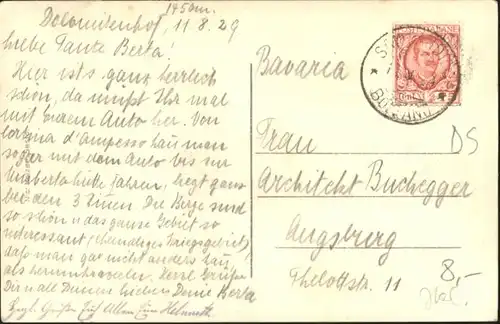 1450m.
Dolomitenhof, 11.8.29
Liebe Tante Berta!
Hier ist's ganz herrlich
schön, da müßt Ihr mal
mit Eurem Auto her. Von
Cortina d'Ampezzo kann man
sogar mit dem Auto bis zur
Umbertohütte fahren, liegt ganz
bei den 3 Zinnen. Die Berge sind
so schön u das ganze Gebiet so
interessant (ehemaliges Kriegsgebiet)
daß man gar nicht anders kann,
als herumkraxeln. Herzl. Grüße
Dir u all Deinen Lieben Deine Berta
Herzl. Grüße Euch Allen Euer Helmuth
Bavaria
Frau
Architekt Buchegger
Augsburg
str. 11
DS
8,-
BOLZANO